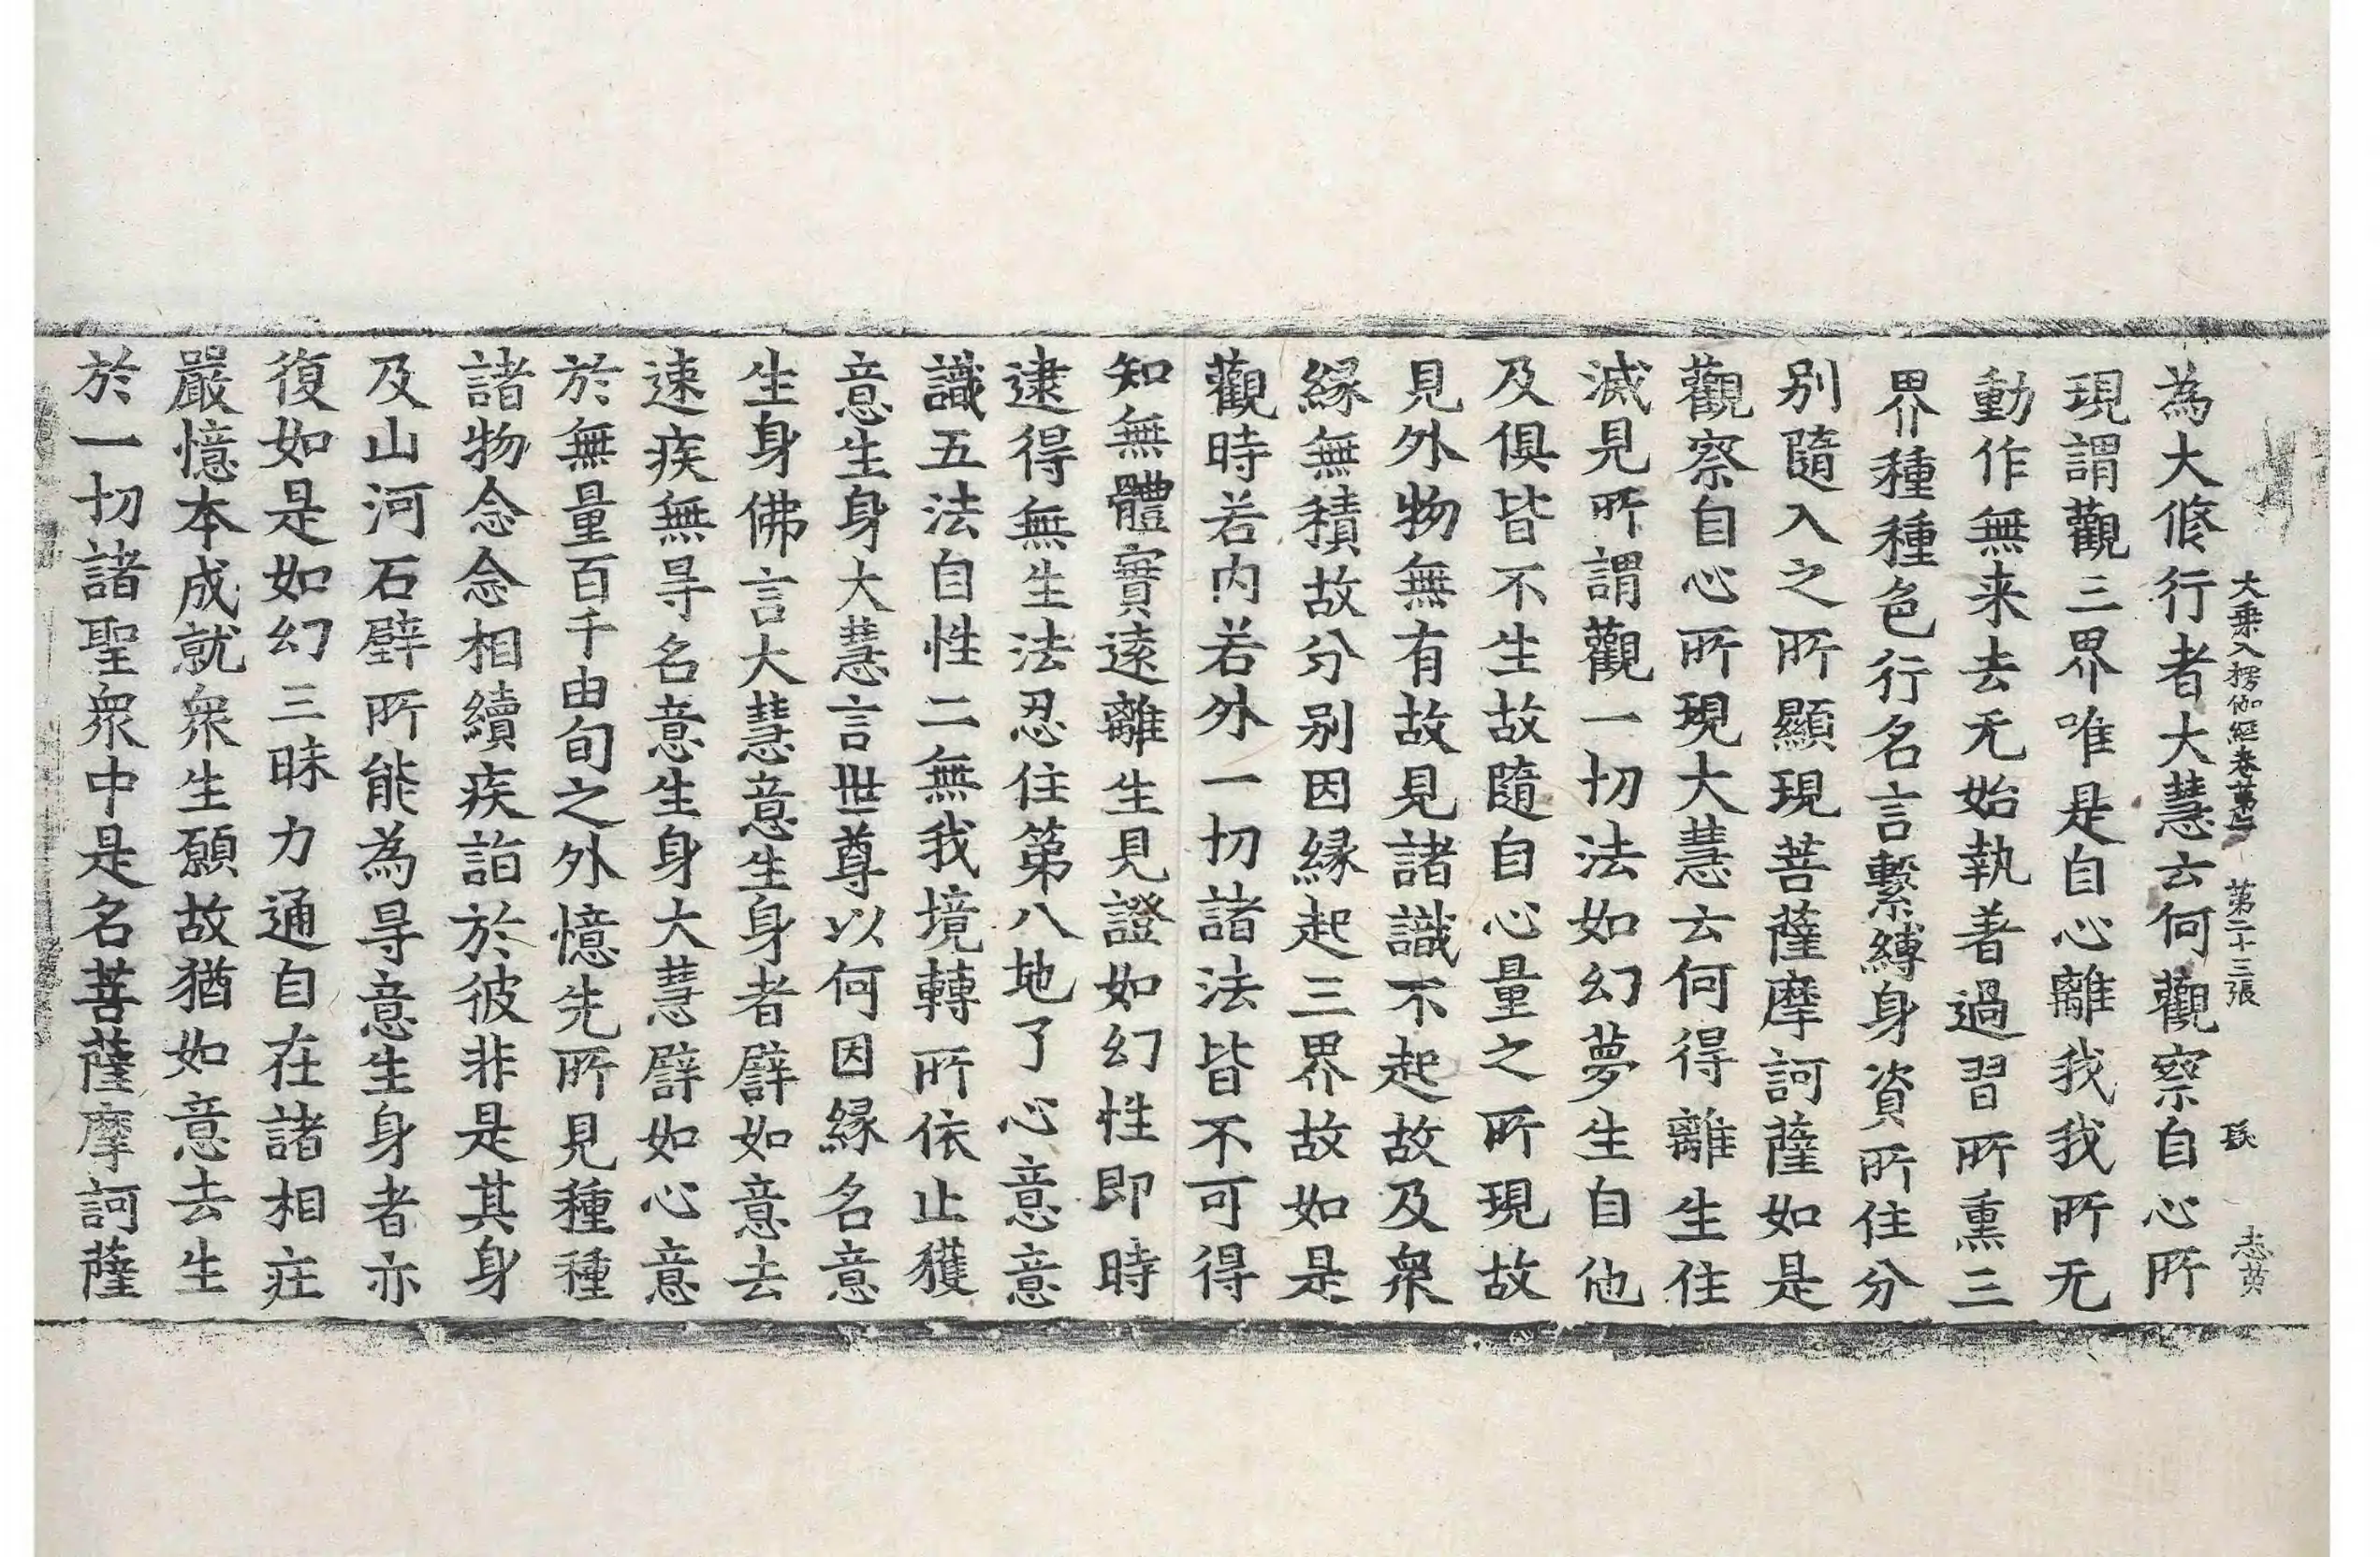 大乗入楞伽經卷第二 第二十三張
為大修行者大慧云何觀察自心所
現謂觀三界唯是自心離我我所无
動作無来去无始執著過習所熏三
界種種色行名言繫縛身資所住分
别隨入之所顯現菩薩摩訶薩如是
觀察自心所現大慧云何得離生住
滅見所謂觀一切法如幻夢生自他
及俱皆不生故隨自心量之所現故
見外物無有故見諸識不起故及衆
縁無積故分别因縁起三界故如是
觀時若内若外一切諸法皆不可得
知無體實遠離生見證如幻性即時
逮得無生法忍住第八地了心意意
識五法自性二無我境轉所依止獲
意生身大慧言世尊以何因縁名意
生身佛言大慧意生身者譬如意去
速疾無㝵名意生身大慧譬如心意
於無量百千由旬之外憶先所見種種
諸物念念相續疾詣於彼非是其身
及山河石壁所能為㝵意生身者亦
復如是如幻三昧力通自在諸相庄
嚴憶本成就衆生願故猶如意去生
於一切諸聖衆中是名菩薩摩訶薩